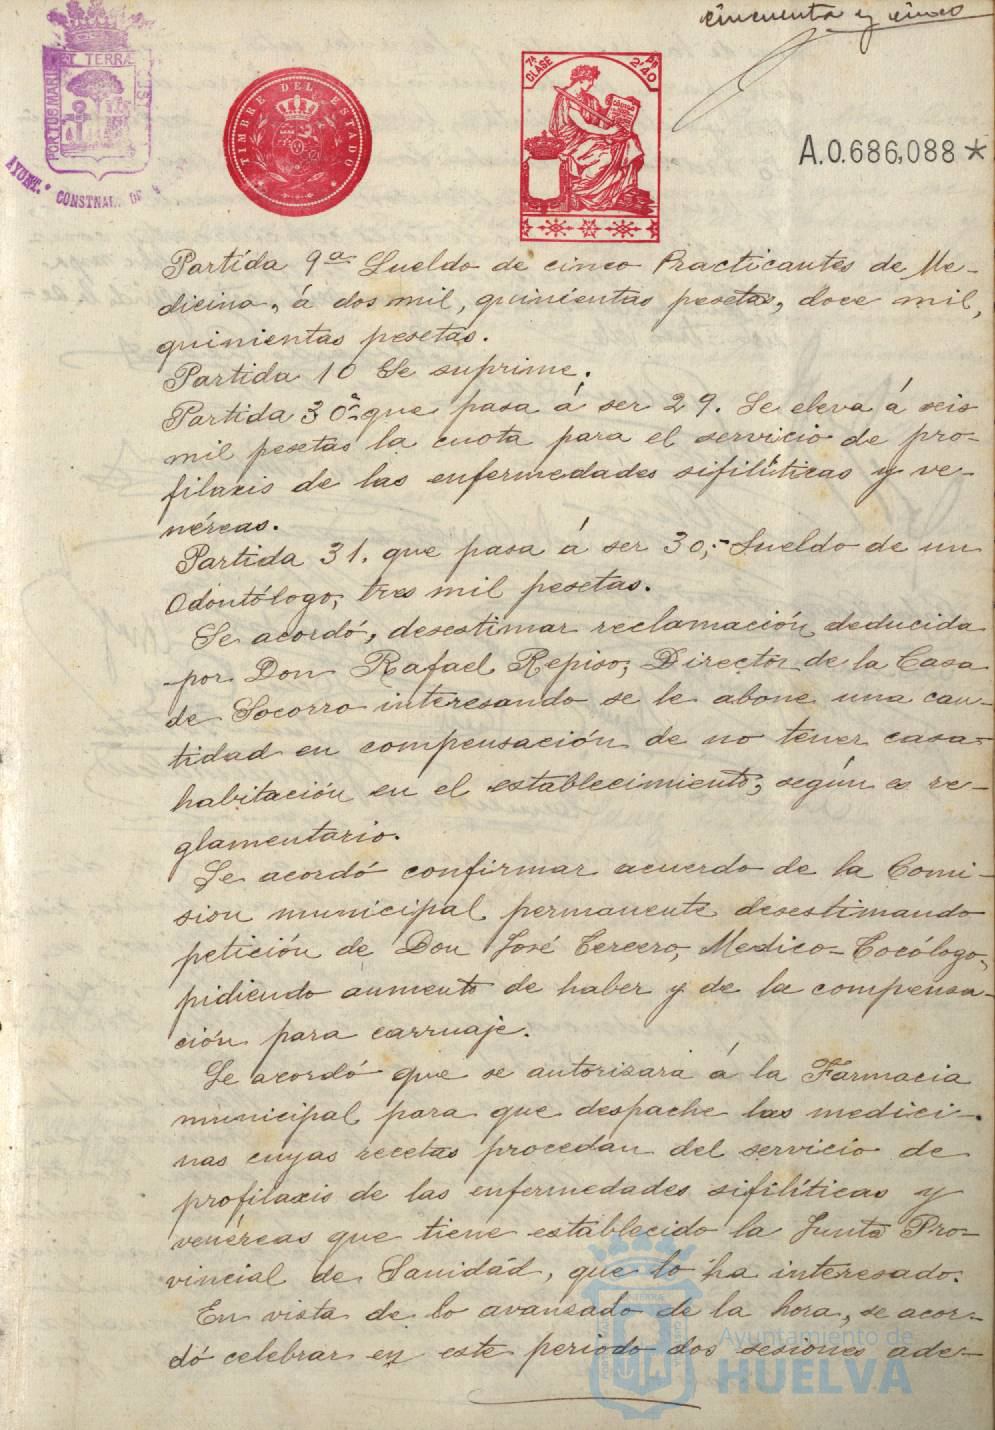 cincuenta y cinco
PORTUS MARIS ET TERRÆ
AYUNT. CONSTNAL. DE
TIMBRE DEL ESTADO
7ª CLASE
2'40
A.0.686,088*
Partida 9ª Sueldo de cinco Practicantes de Me-
dicina, á dos mil, quinientas pesetas, doce mil,
quinientas pesetas.
Partida 10 Se suprime.
Partida 30ª que pasa á ser 29. Se eleva á seis
mil pesetas la cuota para el servicio de pro-
filaxis de las enfermedades sifilíticas y ve-
néreas.
Partida 31. que pasa á ser 30,- Sueldo de un
Odontólogo, tres mil pesetas.
Se acordó, desestimar reclamación deducida
por Don Rafael Repiso, Director de la Casa
de Socorro interesando se le abone una can-
tidad en compensación de no tener casa-
habitación en el establecimiento, según es re-
glamentario.
Se acordó confirmar acuerdo de la Comi-
sion municipal permanente desestimando
petición de Don José Tercero, Medico-Tocólogo,
pidiendo aumento de haber y de la compensa-
ción para carruaje.
Se acordó que se autorizará á la Farmacia
municipal para que despache las medici-
nas cuyas recetas procedan del servicio de
profilaxis de las enfermedades sifilíticas y
venéreas que tiene establecido la Junta Pro-
vincial de Sanidád, que lo ha interesado.
En vista de lo avanzado de la hora, se acor-
dó celebrar en este periodo dos sesiones ade-
Ayuntamiento de
HUELVA